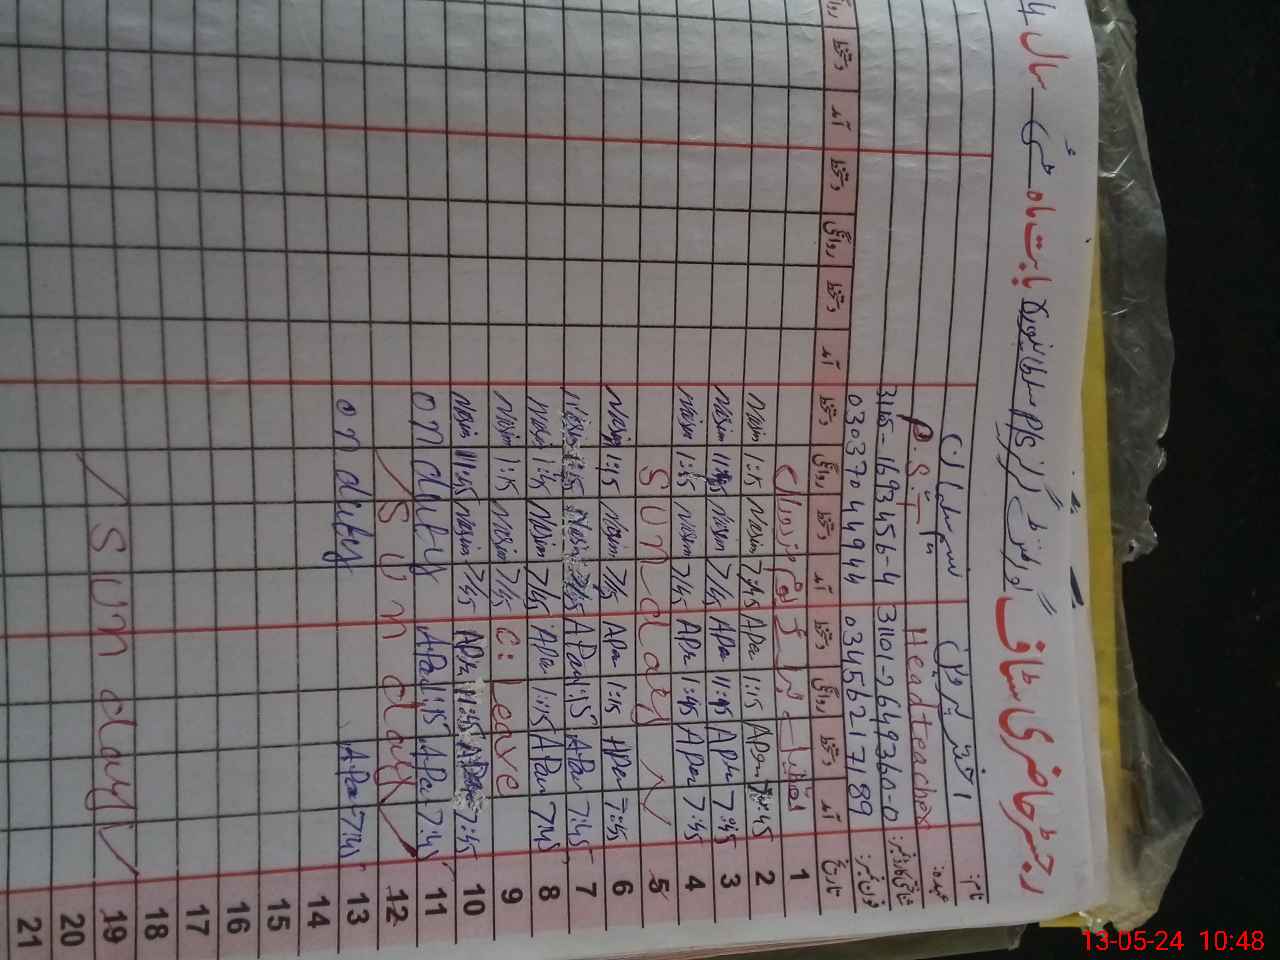 رجسٹر حاضری سٹاف گورنمنٹ گرلز P/S بابت ماہ مئی سال
نام: اختر پروین
عہدہ: Headteacher P.S.T
شناختی کارڈ نمبر: 31101-7649360-0 3165-1693456-4
فون نمبر: 03456217189 03037044944
تاریخ آمد دستخط روانگی دستخط آمد دستخط روانگی دستخط آمد دستخط روانگی دستخط آمد دستخط
1
2 7:45 APar 1:15 APar 7:45 Nasim 1:15 Nasim
3 7:45 APar 11:45 APar 7:45 Nasim 11:45 Nasim
4 7:45 APar 1:45 APar 7:45 Nasim 1:45 Nasim
5 Sunday
6 7:45 APar 1:15 APar 7:45 Nasim 1:15 Nasim
7 7:45 APar 1:15 APar 7:45 Nasim 1:15 Nasim
8 7:45 APar 1:15 APar 7:45 Nasim 1:45 Nasim
9 C: Leave 7:45 Nasim 1:15 Nasim
10 7:45 APar 11:45 APar 7:45 Nasim 11:45 Nasim
11 7:45 APar 1:15 APar on duty
12 Sunday
13 7:45 APar on duty
14
15
16
17
18
19 Sunday
20
21
13-05-24 10:48